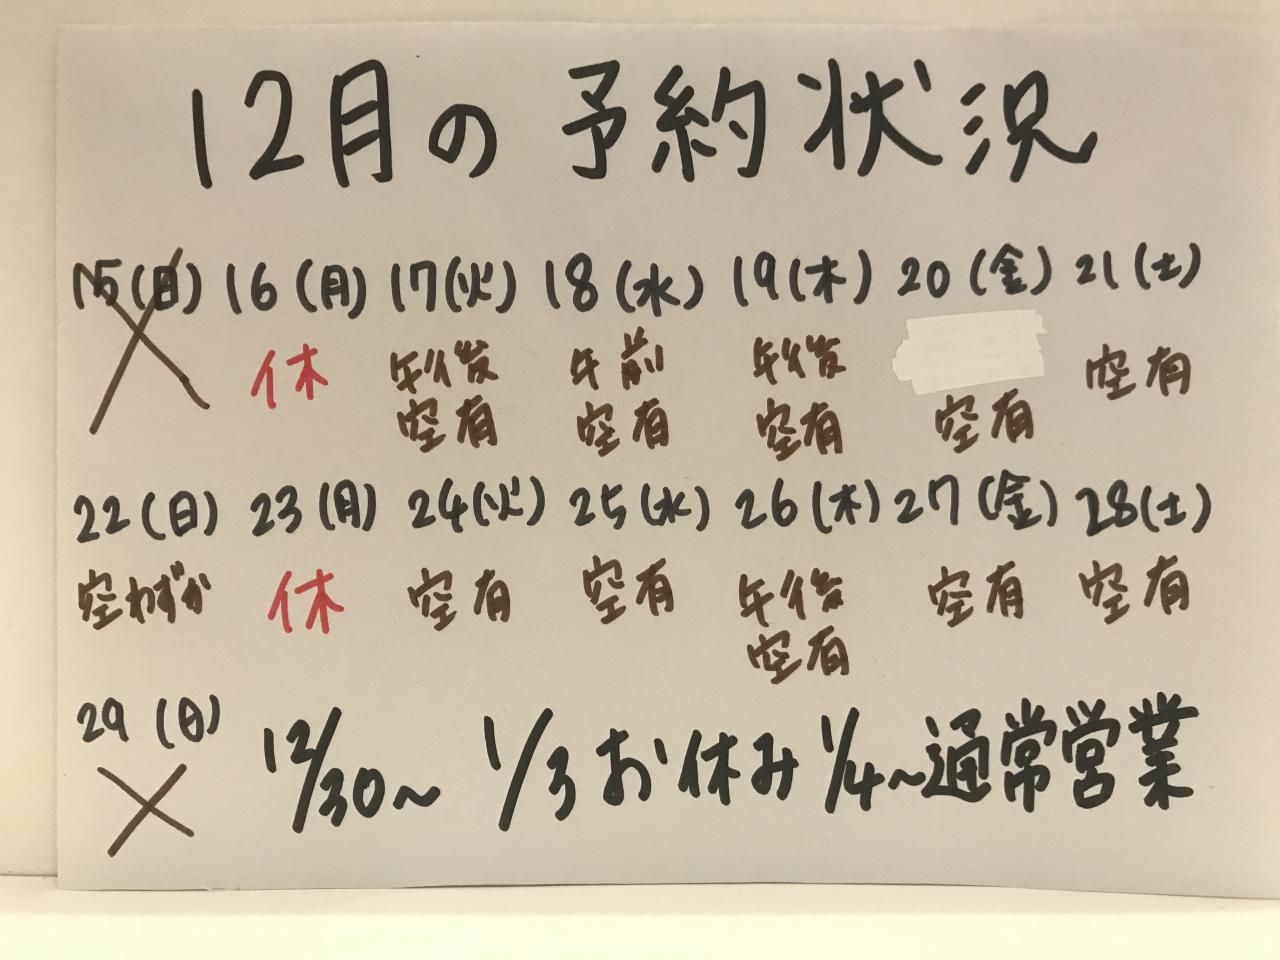 12月の予約状況
15(日) 16(月) 17(火) 18(水) 19(木) 20(金) 21(土)
休 午後 午前 午後 空有
空有 空有 空有 空有
22(日) 23(月) 24(火) 25(水) 26(木) 27(金) 28(土)
空わずか 休 空有 空有 午後 空有 空有
空有
29(日) 12/30~ 1/3お休み 1/4~通常営業